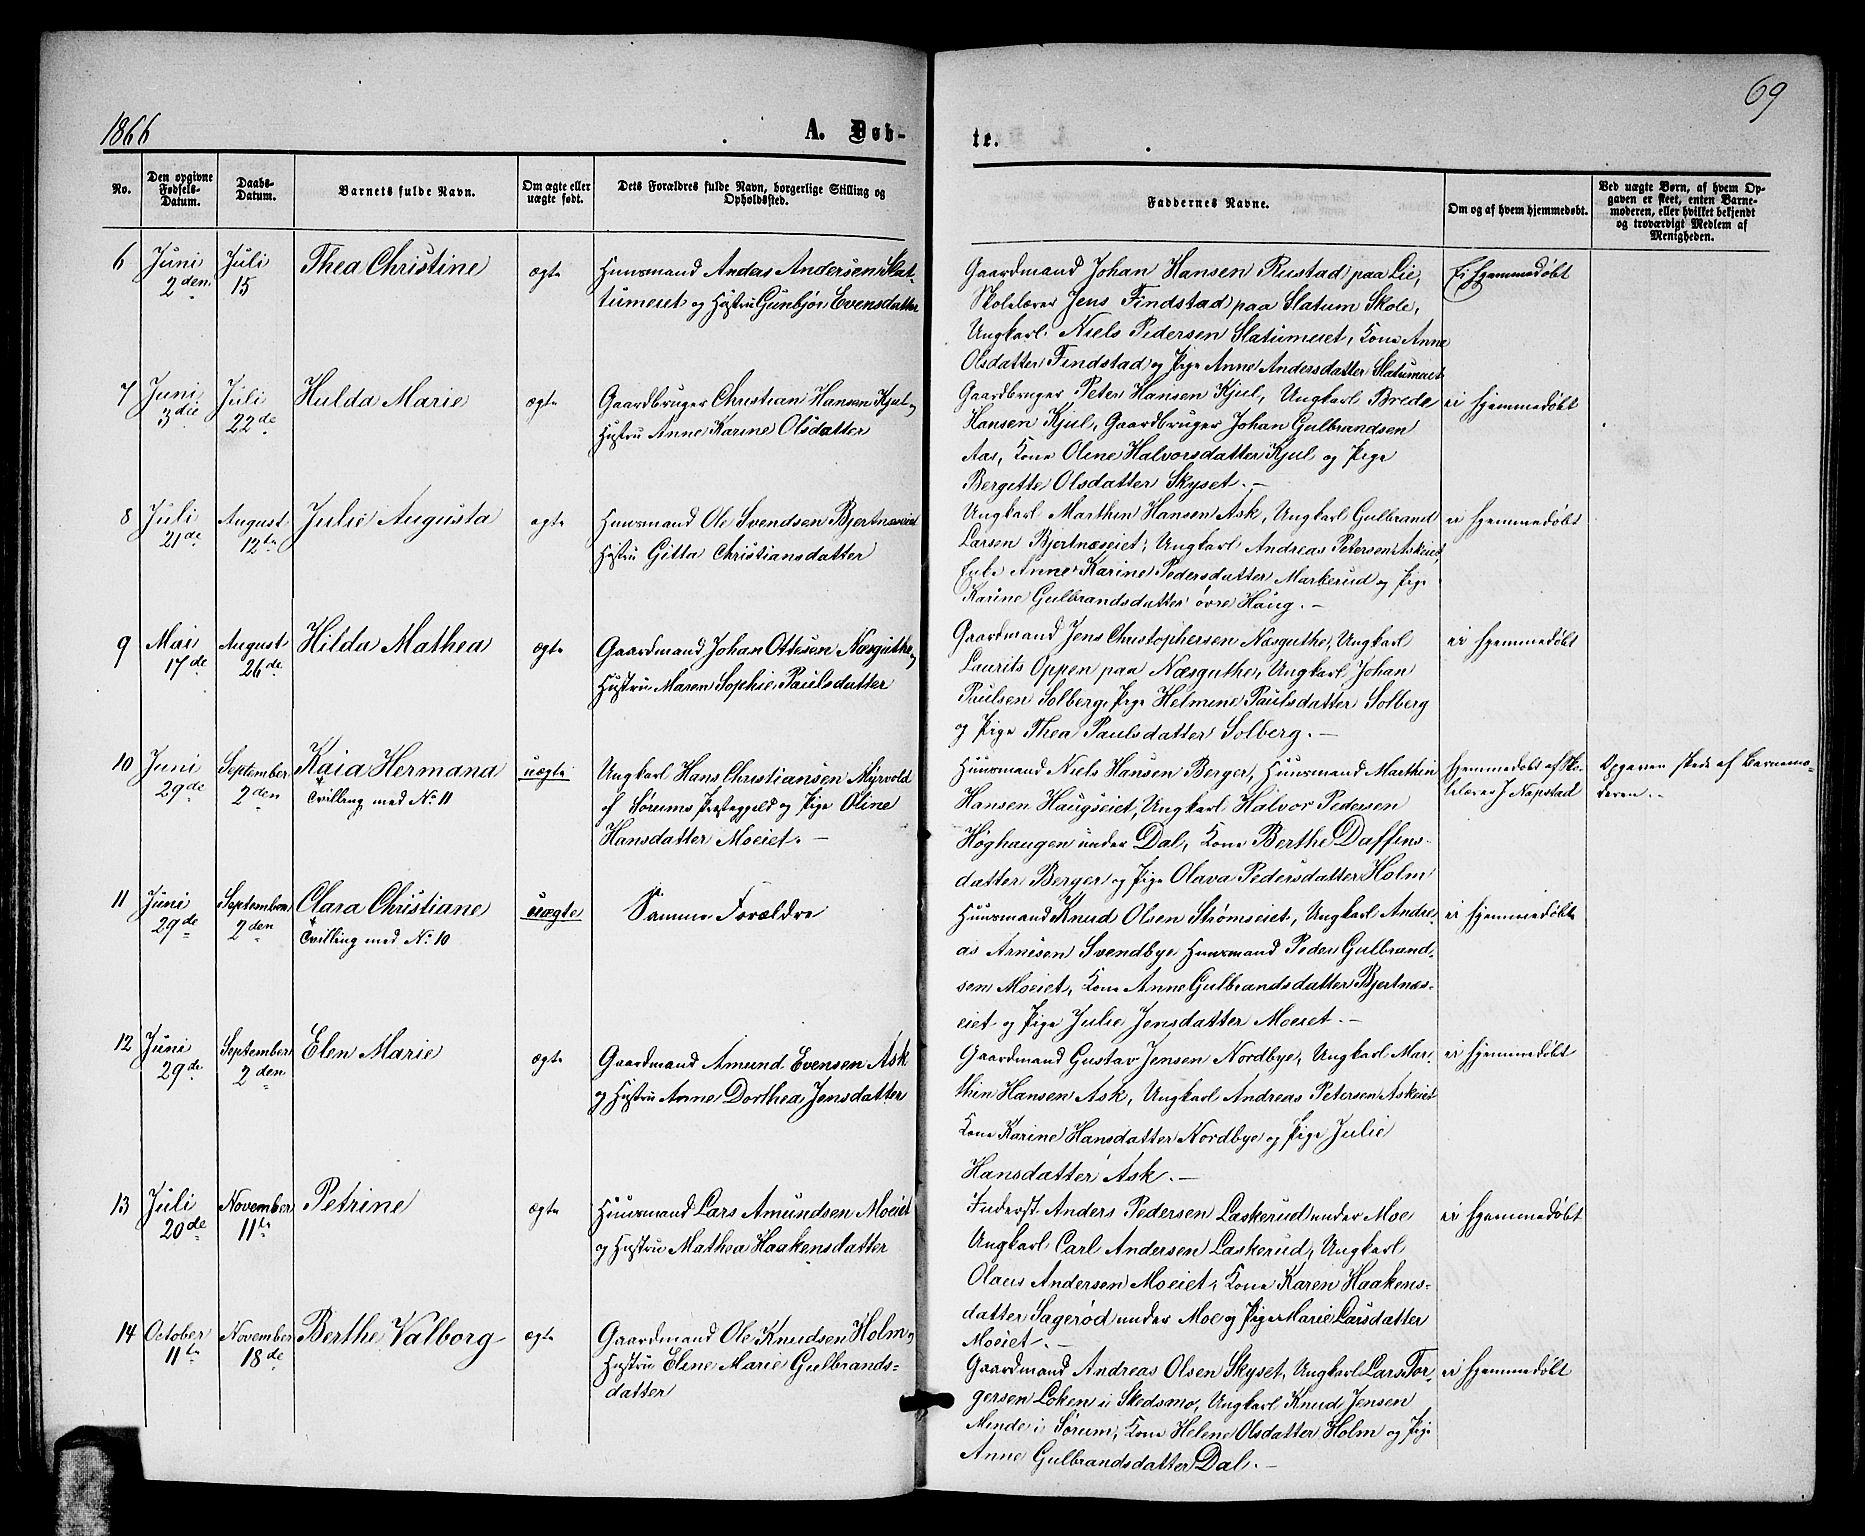 1866
A. Døb-
te.
69
No.
Den opgivne
Fødsels-
Datum.
Daabs-
Datum.
Barnets fulde Navn.
Om ægte eller
uægte født.
Dets Forældres fulde Navn, borgerlige Stilling og
Opholdssted.
Faddernes Navne.
Om og af hvem hjemmedøbt.
Ved uægte Børn, af hvem Op-
gaven er skeet, enten Barne-
moderen, eller hvilket bekjendt
og troværdigt Medlem af
Menigheden.
6
Juni
2den
Juli
15
Thea Christine
ægte
Huusmand Anders Andersen Slat-
tumeiet og Hustru Gunbjør Evensdatter
Gaardmand Johan Hansen Rustad paa Lie,
Skolelærer Jens Findstad paa Slatum Skole,
Ungkarl Niels Pedersen Slatumeiet, Kone Anne
Olsdatter Findstad og Pige Anne Andersdatter Slatumeiet
Ei hjemmedøbt
7
Juni
3die
Juli
22de
Hulda Marie
ægte
Gaardbruger Christian Hansen Kjul og
Hustru Anne Karine Olsdatter
Gaardbruger Peter Hansen Kjul, Ungkarl Brede
Hansen Kjul, Gaardbruger Johan Gulbrandsen
Aas, Kone Oline Halvorsdatter Kjul og Pige
Bergitte Olsdatter Skyset. -
ei hjemmedøbt
8
Juli
21de
August
12te
Julie Augusta
ægte
Huusmand Ole Svendsen Bjertnæseiet
Hustru Gitta Christiansdatter
Ungkarl Marthin Hansen Ask, Ungkarl Gulbrand
Larsen Bjertnæseiet, Ungkarl Andreas Petersen Askeiet,
Anne Karine Pedersdatter Markerud og Pige
Karine Gulbrandsdatter øvre Haug. -
ei hjemmedøbt
9
Mai
17de
August
26de
Hilda Mathea
ægte
Gaardmand Johan Ottesen Næsguthe og
Hustru Maren Sophie Paulsdatter
Gaardmand Jens Christophersen Næsguthe, Ungkarl
Laurits Oppen paa Næsguthe, Ungkarl Johan
Paulsen Solberg, Pige Helmine Paulsdatter Solberg
og Pige Thea Paulsdatter Solberg. -
ei hjemmedøbt
10
Juni
29de
September
2den
Kaia Hermana
Tvilling med No. 11
uægte
Ungkarl Hans Christiansen Myrvold
af Sørums Præstegjeld og Pige Oline
Hansdatter Moeiet. -
Huusmand Niels Hansen Berger, Huusmand Marthin
Hansen Haugseiet, Ungkarl Halvor Pedersen
Høghaugen under Dal, Kone Berthe Daffins-
datter Berger og Pige Olava Pedersdatter Holm
hjemmedøbt af Sko-
lelærer J Napstad
Opgaven skede af Barnemo-
deren. -
11
Juni
29de
September
2den
Clara Christiane
Tvilling med No. 10
uægte
Samme Forældre
Huusmand Knud Olsen Strømseiet, Ungkarl Andre-
as Arnesen Svendbye, Huusmand Peder Gulbrand-
sen Moeiet, Kone Anne Gulbrandsdatter Bjertnæs-
eiet og Pige Julie Jensdatter Moeiet. -
ei hjemmedøbt
12
Juni
29de
September
2den
Elen Marie
ægte
Gaardmand Amund Evensen Ask
og Hustru Anne Dorthea Jensdatter
Gaardmand Gustav Jensen Nordbye, Ungkarl Mar-
thin Hansen Ask, Ungkarl Andreas Petersen Askeiet
Kone Karine Hansdatter Nordbye og Pige Julie
Hansdatter Ask. -
ei hjemmedøbt
13
Juli
20de
November
11te
Petrine
ægte
Huusmand Lars Amundsen Moeiet
og Hustru Mathea Haakensdatter
Inderst Anders Pedersen Laskerud under Moe
Ungkarl Carl Andersen Laskerud, Ungkarl
Olaus Andersen Moeiet, Kone Karen Haakens-
datter Sagerød under Moe og Pige Marie Larsdatter
Moeiet. -
ei hjemmedøbt
14
October
11te
November
18de
Berthe Valborg
ægte
Gaardmand Ole Knudsen Holm og
Hustru Eline Marie Gulbrands-
datter
Gaardmand Andreas Olsen Skyset, Ungkarl Lars Tor-
gersen Løken i Skedsmo, Ungkarl Knud Jensen
Minde i Sørum, Kone Helene Olsdatter Holm og Pige
Anne Gulbrandsdatter Dal. -
ei hjemmedøbt